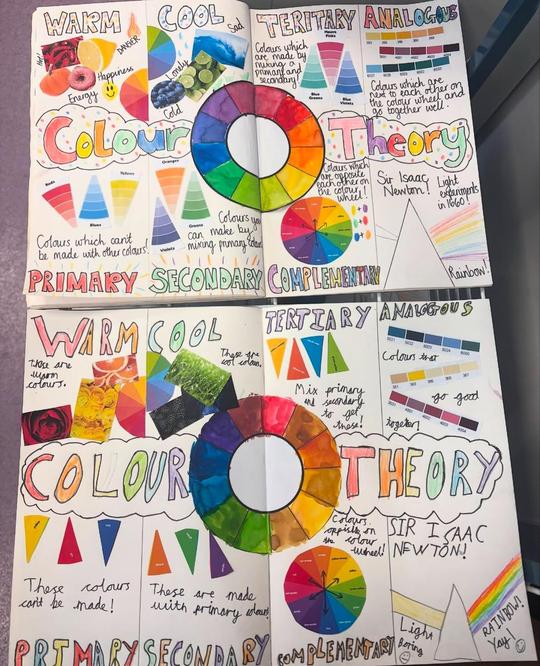 WARM
COOL
Hot!
DANGER
Happiness
Energy
Sad
Lonely
Cold
TERITARY
Colours which
are made by
mixing a
primary and
secondary!
Mauve
Pinks
Blue
Greens
Blue
Violets
ANALOGOUS
Colours which are
next to each other on
the colour wheel and
go together well.
Colour Theory
Reds
Blues
Yellows
Colours which can't
be made with other colours!
PRIMARY
Oranges
Greens
Violets
Colours you
can make by
mixing primary colours
SECONDARY
Colours which
are opposite
each other on
the colour
wheel!
COMPLEMENTARY
Sir Isaac
Newton!
Light
experiments
in 1660!
Rainbow!
WARM
COOL
These are
warm
colours.
These are
cool colours.
TERTIARY
Mix primary
and secondary
to get
these!
ANALOGOUS
Colours that
go good
together!
COLOUR THEORY
These colours
cant be made!
PRIMARY
These are made
with primary colours
SECONDARY
Colours
oppisite on
the colour
wheel!
COMPLEMENTARY
SIR ISAAC
NEWTON!
Light
Boring
RAINBOW!
Yay